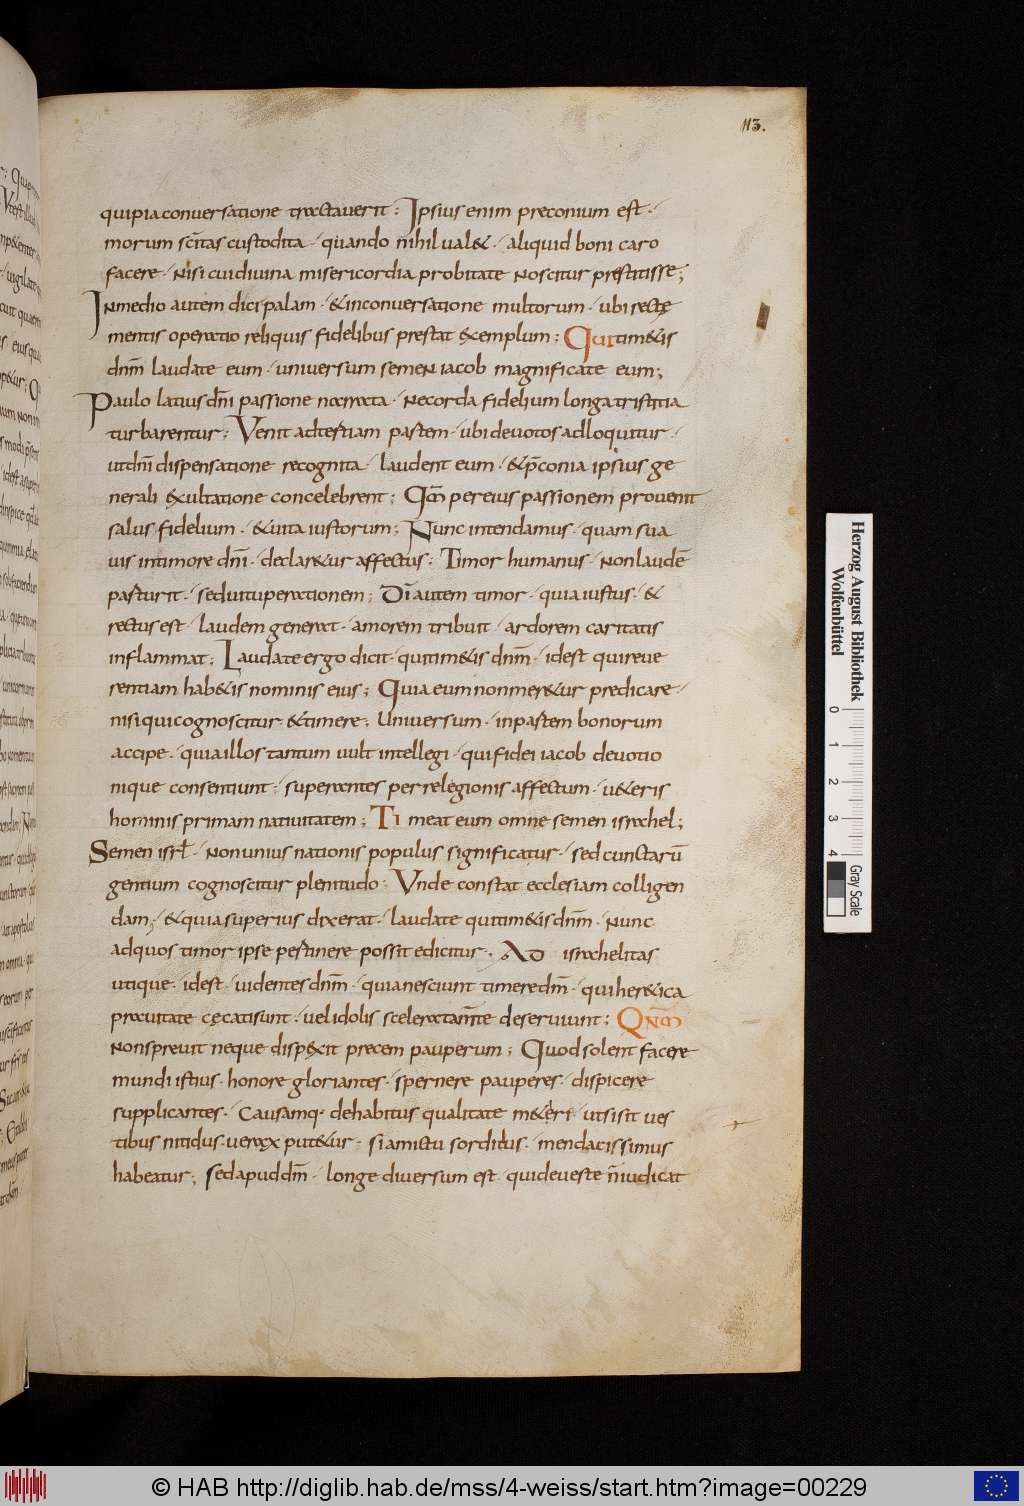 113.
qui pia conuersatione tractauerit; Ipsius enim preconium est·
morum scitas custodita· quando nihil ual&· aliquid boni caro
facere· Nisi cui diuina misericordia probitate Noscitur prestitisse;
IN medio autem dici palam· & in conuersatione multorum· ubi rectę
mentis operatio reliquis fidelibus prestat exemplum; Qui tim&is
dnm laudate eum· uniuersum semen iacob magnificate eum;
Paulo latius dni passione narrata· Ne corda fidelium longa tristitia
turbarentur; Venit ad tertiam partem· ubi deuotos adloquitur·
ut dni dispensatione recognita· laudent eum· & pconia ipsius ge
nerali exultatione concelebrent; Qm per eius passionem prouenit
salus fidelium· & uita iustorum; Nunc intendamus· quam sua
uis in timore dni· declar&ur affectus; Timor humanus· Non laudē
parturit· sed uituperationem; Di autem timor· quia iustus· &
rectus est· laudem generat· amorem tribuit· ardorem caritatis
inflammat; Laudate ergo dicit· qui tim&is dnm· id est qui reue
rentiam hab&is nominis eius; Quia eum non mer&ur predicare·
nisi qui cognoscitur & timere; Uniuersum· in partem bonorum
accipe· quia illos tantum uult intellegi· qui fidei iacob deuotio
nique consentiunt· superantes per relegionis affectum· u&eris
hominis primam natiuitatem; Ti meat eum omne semen israhel;
Semen isrl· Non unius nationis populus significatur· sed cunctarū
gentium cognoscitur plenitudo· Vnde constat ecclesiam colligen
dam; & quia superius dixerat· laudate qui tim&is dnm· Nunc
ad quos timor ipse pertinere possit edicitur· AD israhelitas
utique· id est· uidentes dnm· quia nesciunt timere dm· qui her&ica
prauitate cęcati sunt· uel idolis scelerata mte deseruiunt; QNM
Non spreuit neque dispexit precem pauperum; Quod solent facere
mundi istius· honore gloriantes· spernere pauperes· dispicere
supplicantes· Causamq· de habitus qualitate m&eri· ut si sit ues
tibus nitidus· uerax put&ur· si amictu sordidus· mendacissimus
habeatur; sed apud dm· longe diuersum est· qui de ueste n iudicat
Herzog August Bibliothek
Wolfenbüttel
0 1 2 3 4
Gray Scale
© HAB http://diglib.hab.de/mss/4-weiss/start.htm?image=00229